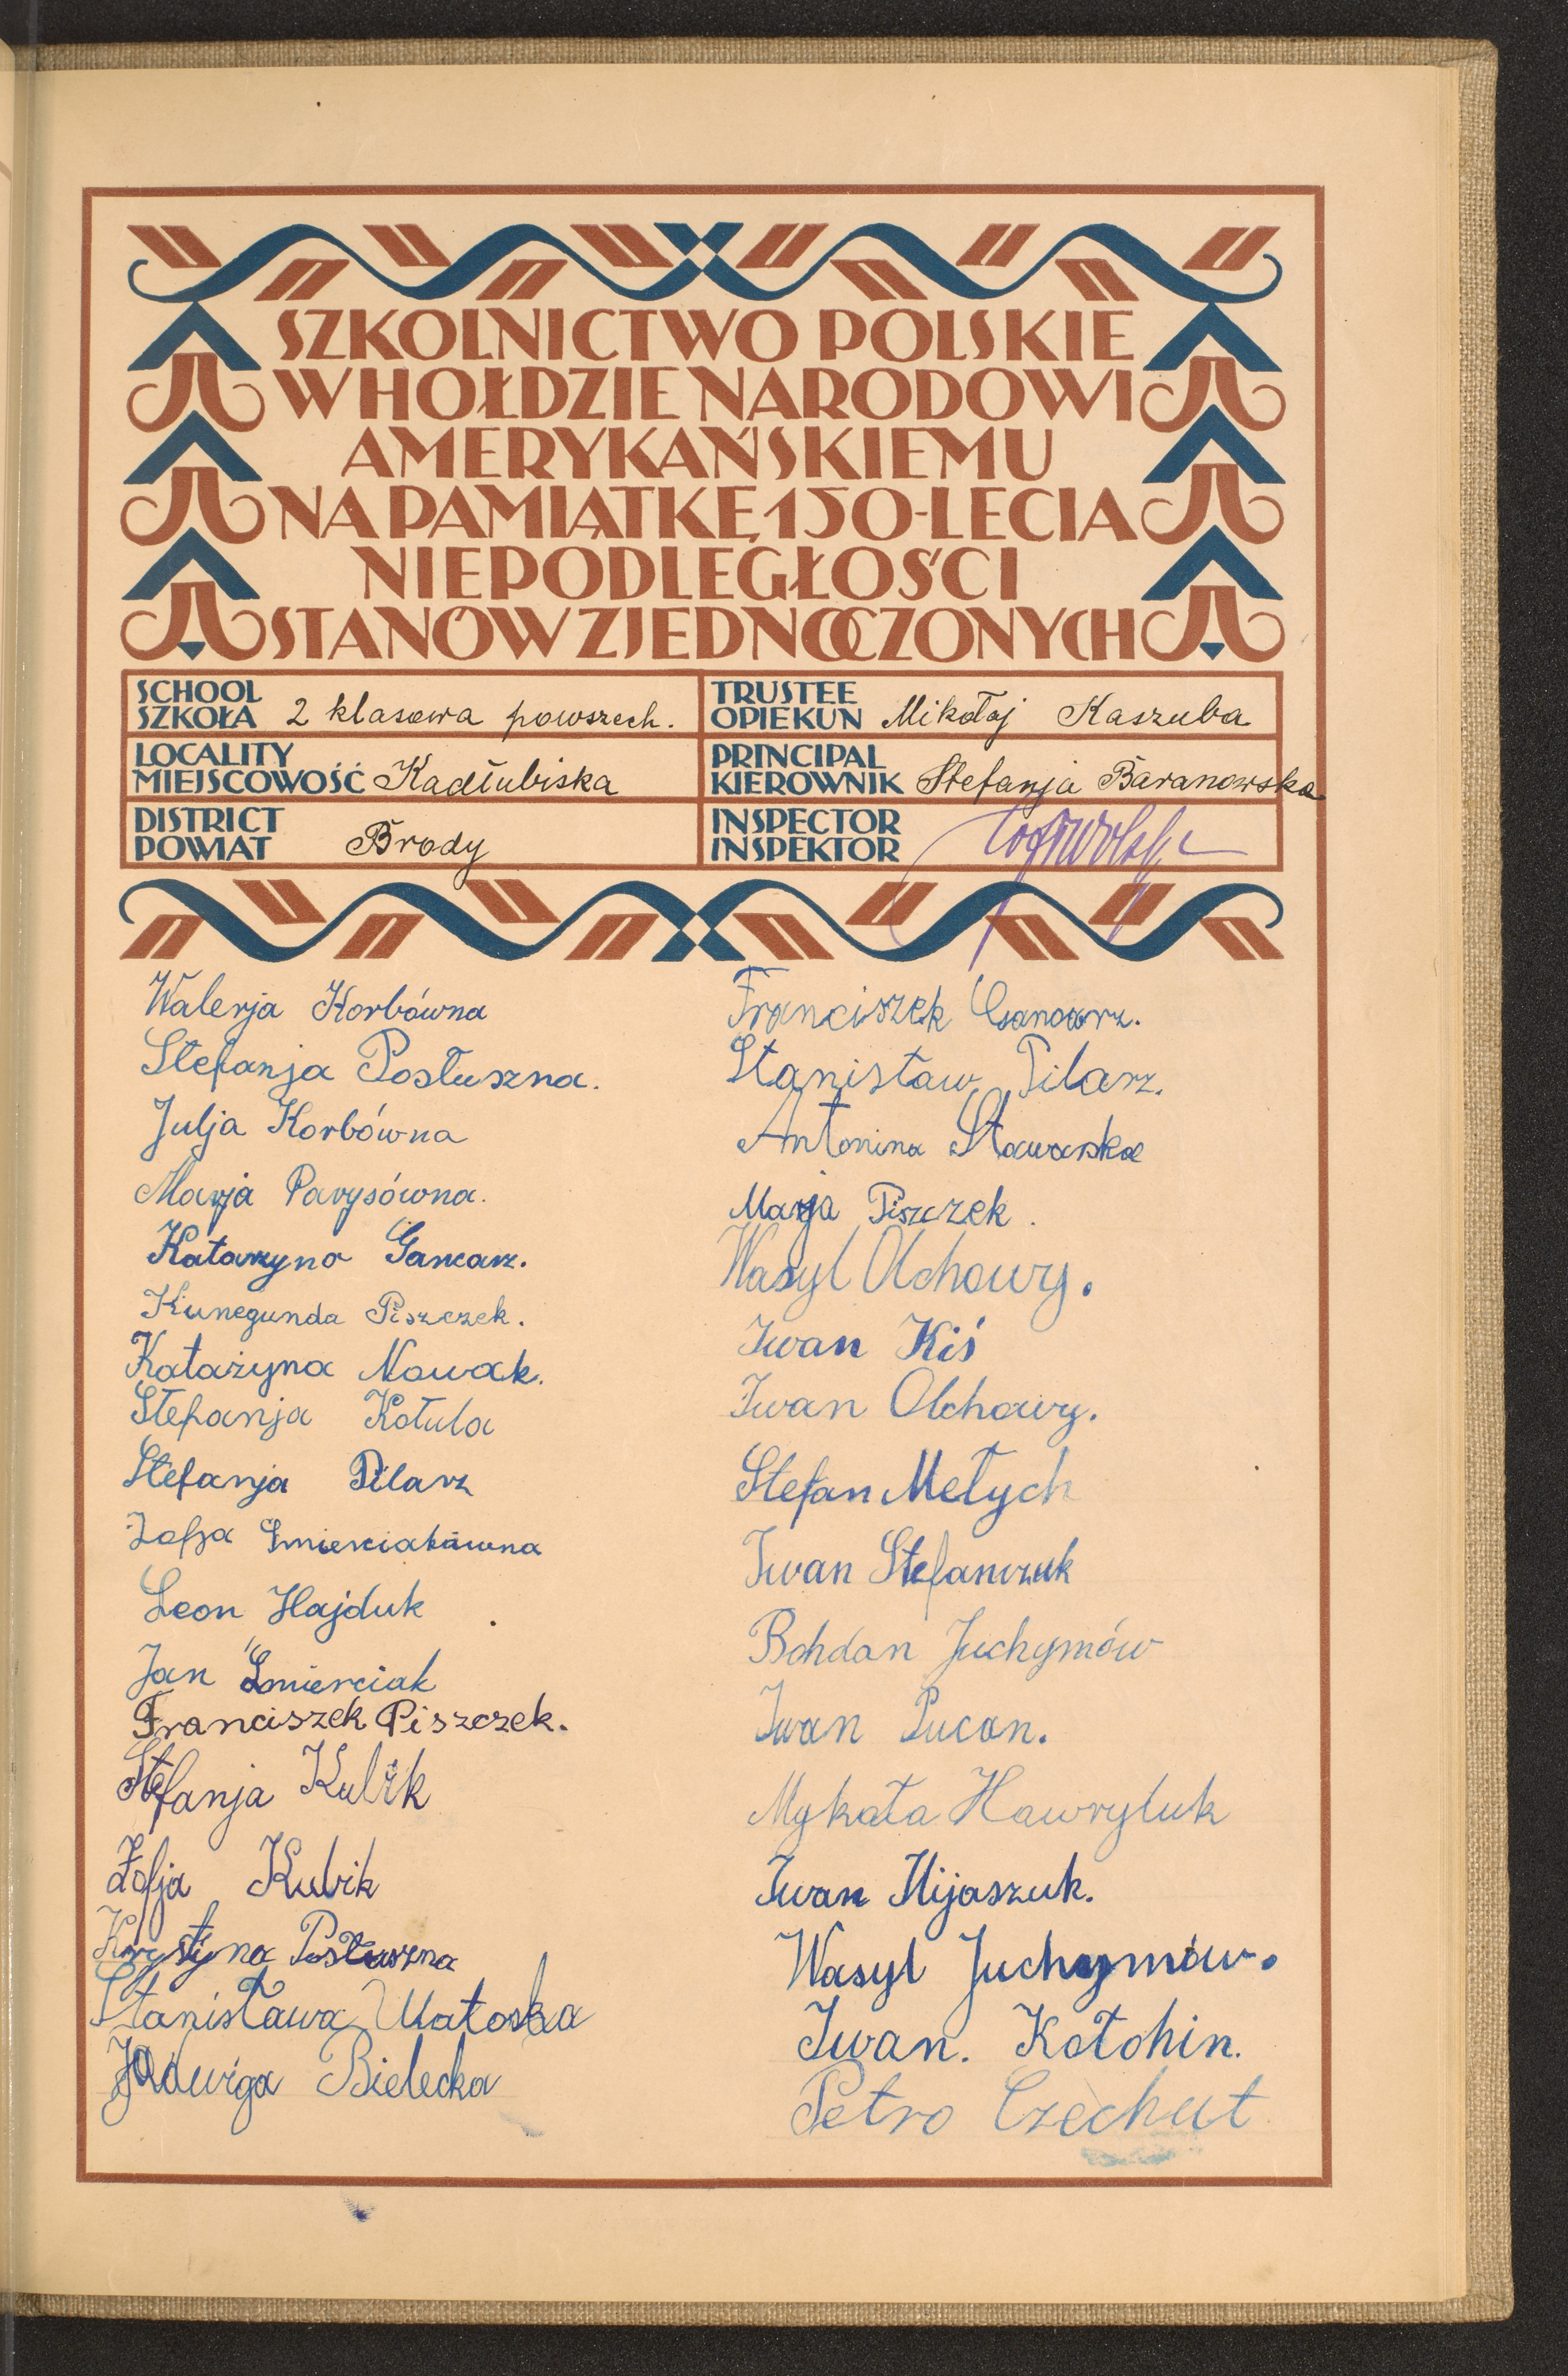 SZKOLNICTWO POLSKIE
W HOŁDZIE NARODOWI
AMERYKAŃSKIEMU
NA PAMIĄTKĘ 150-LECIA
NIEPODLEGŁOŚCI
STANÓW ZJEDNOCZONYCH
SCHOOL
SZKOŁA 2 klasowa powszech.
LOCALITY
MIEJSCOWOŚĆ Kadłubiska
DISTRICT
POWIAT Brody
TRUSTEE
OPIEKUN Mikołaj Kaszuba
PRINCIPAL
KIEROWNIK Stefanja Baranowska
INSPECTOR
INSPEKTOR
Walerja Korbówna
Stefanja Postuszna.
Julja Korbówna
Marja Parysówna.
Katarzyna Gancarz.
Kunegunda Piszczek.
Katażyna Nowak.
Stefanja Kotula
Stefanja Pilarz
Zofja Śmierciakówna
Leon Hajduk
Jan Śmierciak
Franciszek Piszczek.
Stefanja Kubik
Zofja Kubik
Krystyna Postuszna
Stanisława Matoska
Jadwiga Bielecka
Franciszek
Stanisław Pilarz.
Antonina Stawarska
Marja Piszczek.
Wasyl Olchowy.
Iwan Kiś
Iwan Olchowy.
Stefan Metych
Iwan Stefanczuk
Bohdan Juchymów
Iwan Pucan.
Mykała Hawryluk
Iwan Hijaszuk.
Wasyl Juchymów.
Iwan. Kotohin.
Petro Czechut